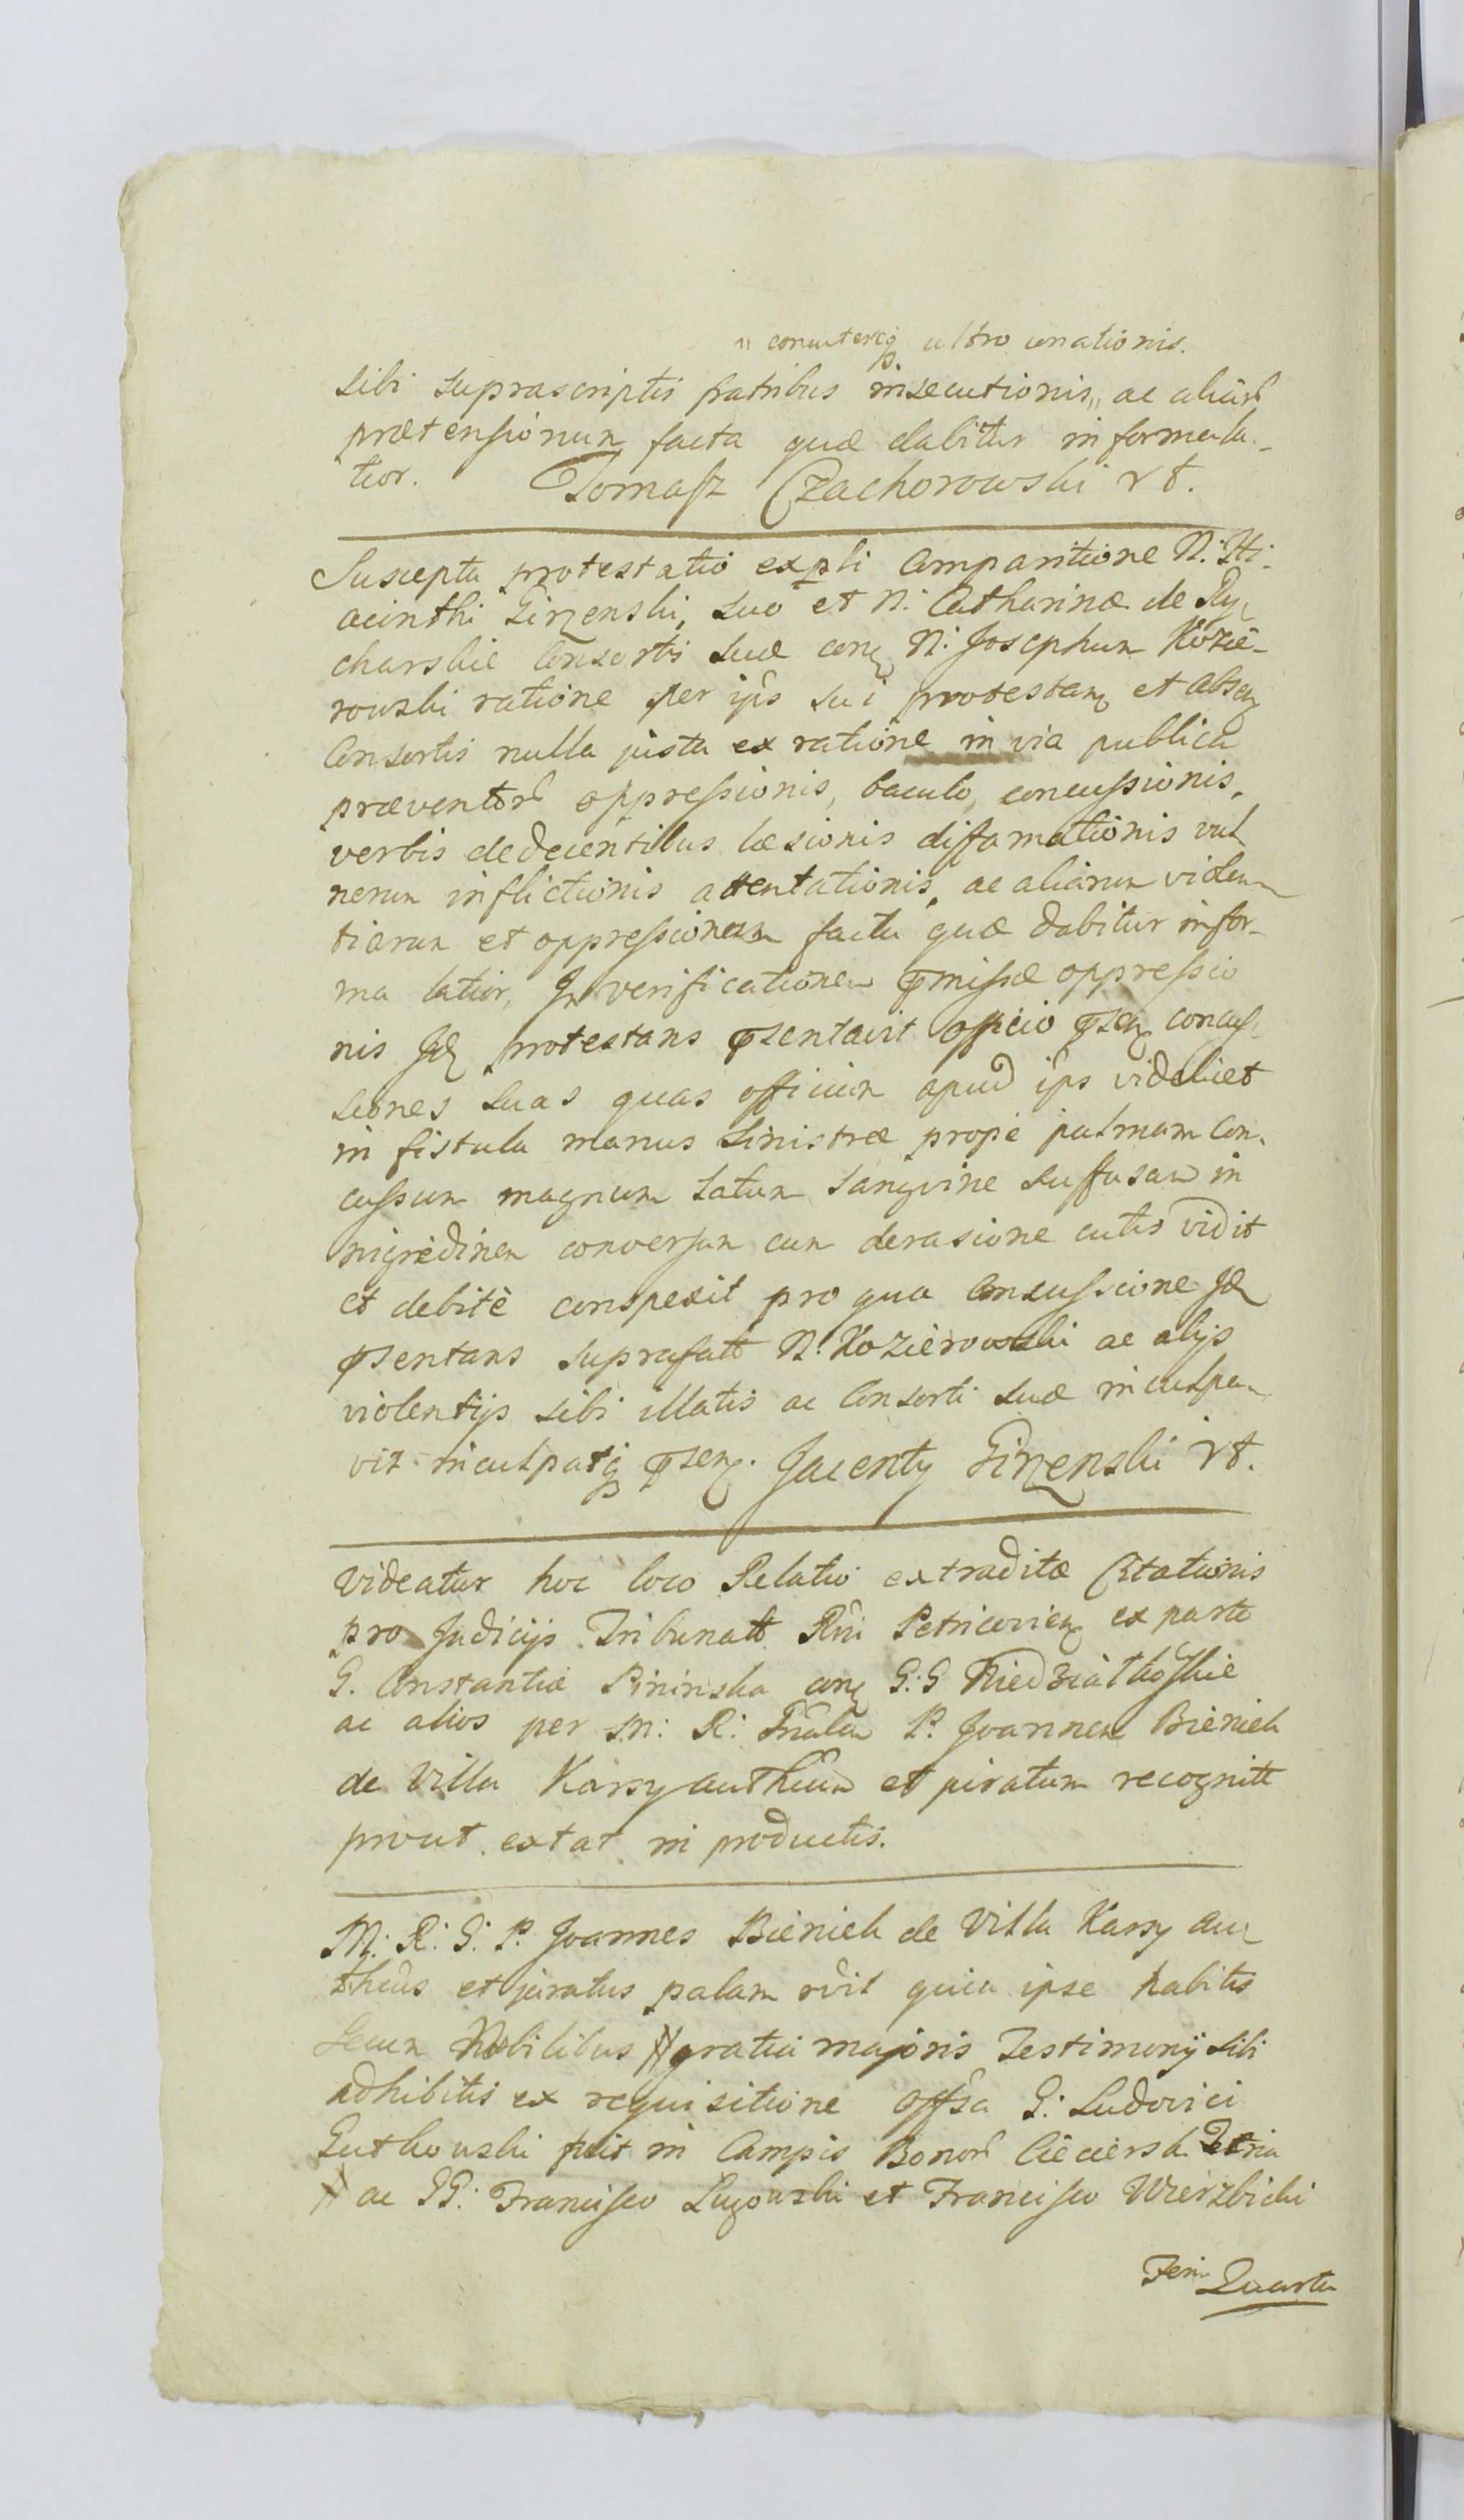 „ concuterq3 ultro
sibi suprascriptis fratribus insecutionis„ ac aliar
prætensionum facta quæ dabitur in forma la-
tior. Tomasz Czachorowski rt.
Suscepta protestatio expli Comparitione N: Hi-
acinthi Girzenski, suo et N: Catharinæ de Ry-
charskie Consortis suæ con N: Josephum Kozie-
rowski ratione per ips sui protestan et absen
Consortis nulla justa ex ratione in via publica
præventor oppressionis, baculo, concussionis,
verbis dedecentibus læsionis diffamationis vul-
nerum inflictionis attentationis, ac aliarum violen-
tiarum et oppressionum facta quæ dabitur in for-
ma latior, In verificationem pmissæ oppressio
nis Id protestans psentavit officio psen concus-
siones suas quas officium apud ips videlicet
in fistula manus sinistræ propè palmam Con-
cussum magnum satum sangvine suffusam in
nigredinem conversum cum derasione cutis vidit
et debitè conspexit pro qua Concussione Id
psentans suprafatt N: Kozierowski ac alijs
violentijs sibi illatis ac Consorti suæ inculpa-
vit inculpatq3 psen. Jacenty Girzenski rt.
Videatur hoc loco Relatio extraditæ Citationis
pro Judicijs Tribunatt Rni Petricovien ex parte
G. Constantiæ Pininska con G: G
ac alios per M: R: P. Joannem Bieniek
de Villa Karsy authen et juratum recognitt
prout extat in productis.
M: R: G: P. Joannes Bieniek de Villa Karsy au-
theus et juratus palam rdit quia ipse habitis
secum Nobilibus # gratia majoris Testimonij sibi
adhibitis ex requisitione offsa G: Ludovici
Gutkowski fuit in Campis Bonor
# ac GG: Francisco Lugowski et Francisco Wierzbicki
Feria Quarta